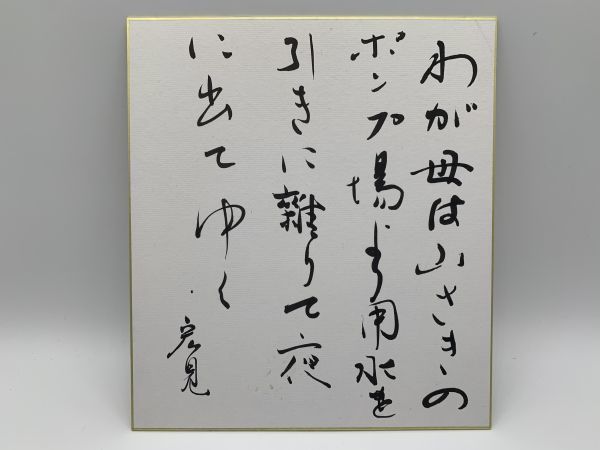 わが母は山さきの
ポンプ場より用水を
引きに離りて夜
に出てゆく
宏見